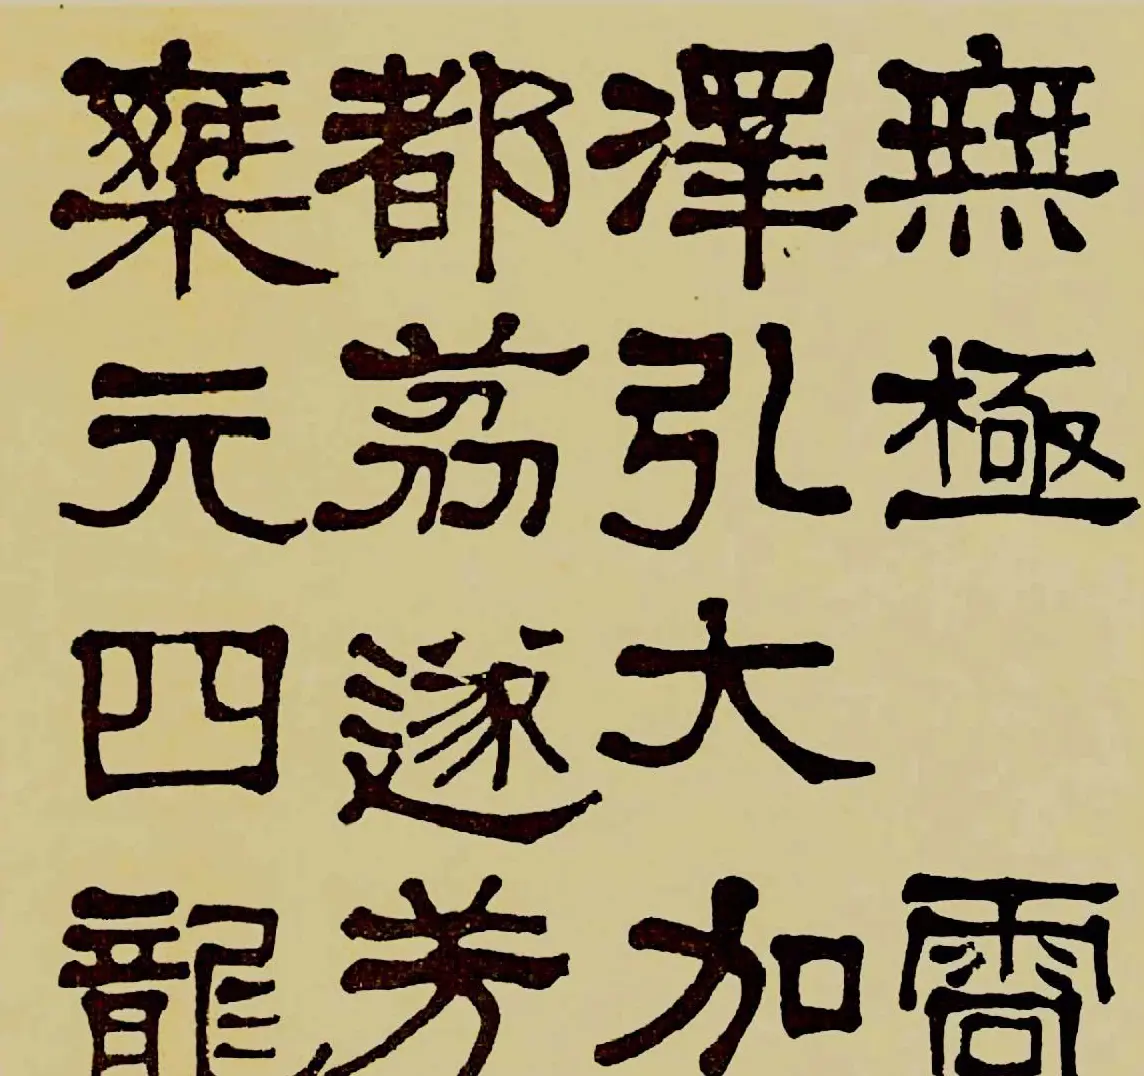 無極
澤弘大加
都荔遂芳
椉元四龍